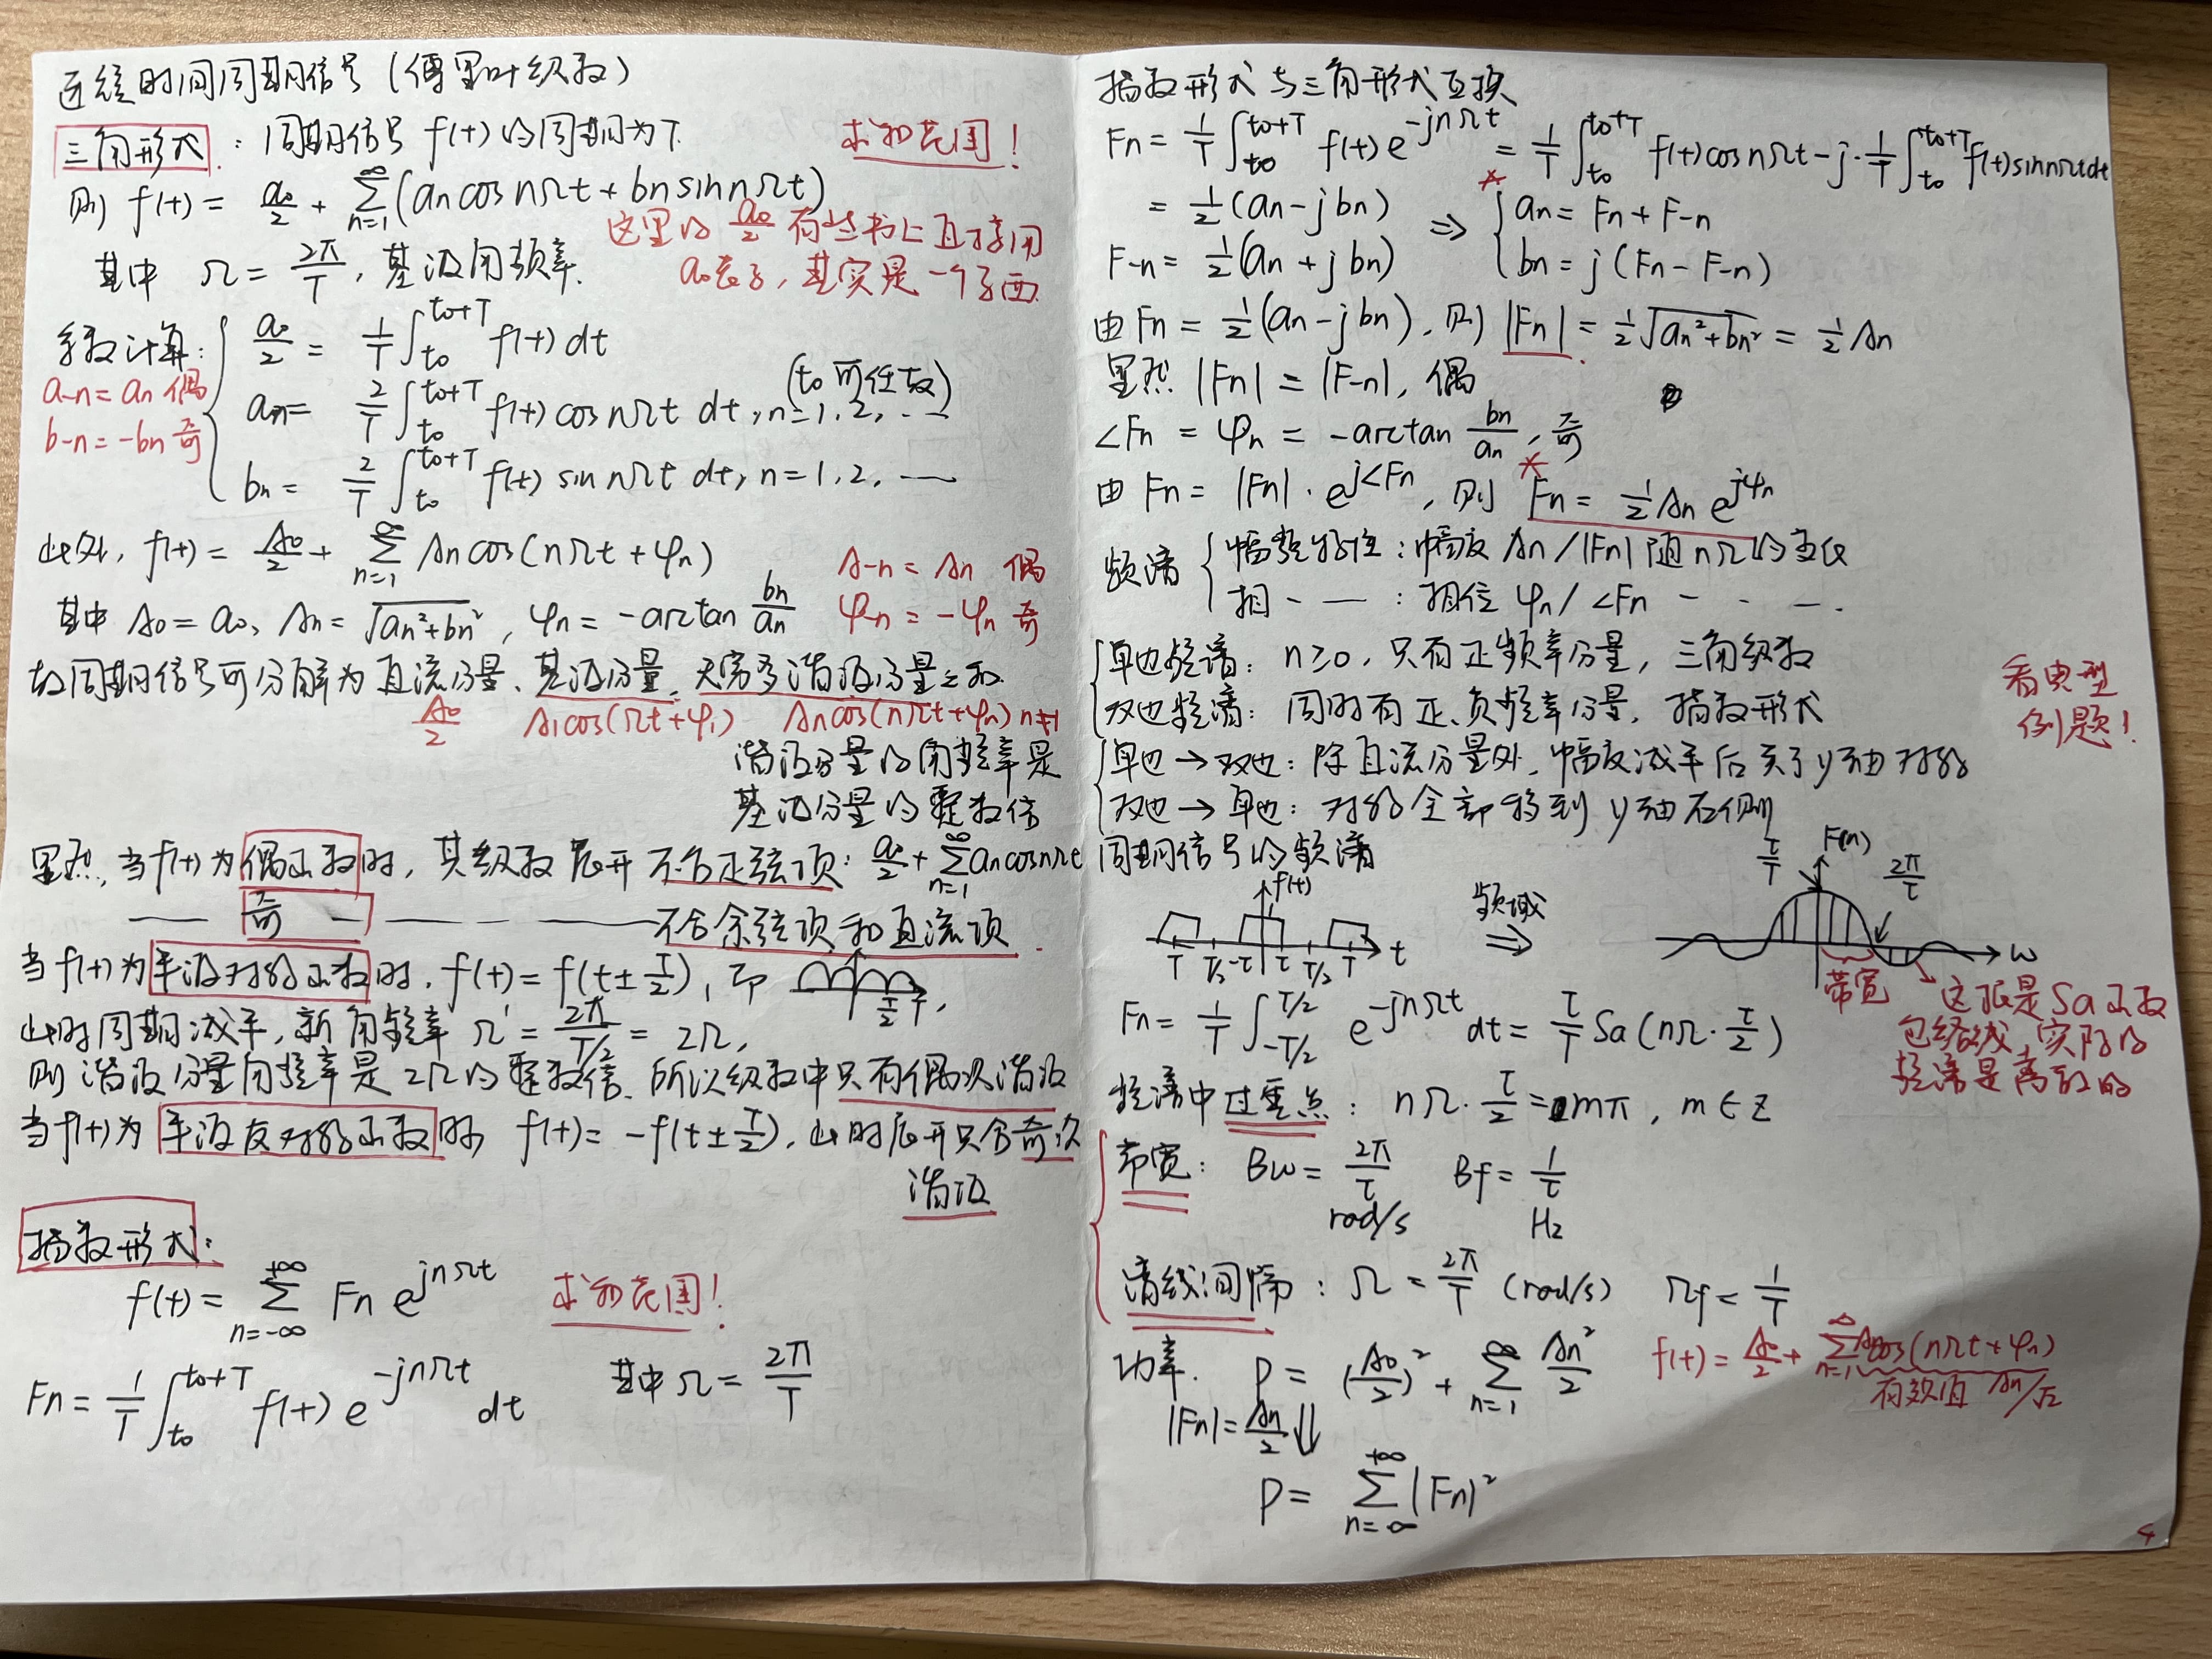 连续时间周期信号(傅里叶级数)
三角形式:周期信号 f(t) 的周期为T. 求和范围!
则 f(t) = a₀/2 + ∑_{n=1}^{∞}(an cos nΩt + bn sin nΩt)
这里的 a₀/2 有些书上直接用
a₀表示,其实是一个东西.
其中 Ω = 2π/T,基波角频率.
系数计算:{ a₀/2 = 1/T ∫_{t₀}^{t₀+T} f(t) dt
(t₀ 可任取)
a-n = an 偶
an = 2/T ∫_{t₀}^{t₀+T} f(t) cos nΩt dt, n=1,2,…
b-n = -bn 奇
bn = 2/T ∫_{t₀}^{t₀+T} f(t) sin nΩt dt, n=1,2,…
此外, f(t) = A₀/2 + ∑_{n=1}^{∞} An cos(nΩt + φn)
A-n = An 偶
其中 A₀ = a₀, An = √(an²+bn²), φn = -arctan bn/an
φ-n = -φn 奇
故周期信号可分解为直流分量、基波分量、无穷多谐波分量之和.
A₀/2 A₁cos(Ωt+φ₁) Ancos(nΩt+φn) n≠1
谐波分量的角频率是
基波分量的整数倍
显然,当f(t)为偶函数时,其级数展开不含正弦项: a₀/2 + ∑_{n=1}^{∞} an cos nΩt
—— 奇 — ———— 不含余弦项和直流项.
当f(t)为半波对称函数时, f(t) = f(t±T/2), 即 T/2 T,
此时周期减半,新角频率 Ω' = 2π/(T/2) = 2Ω,
则谐波分量角频率是2Ω的整数倍.所以级数中只有偶次谐波
当f(t)为半波反对称函数时, f(t) = -f(t±T/2), 此时展开只含奇次
谐波
指数形式:
f(t) = ∑_{n=-∞}^{+∞} Fn e^{jnΩt} 求和范围!
Fn = 1/T ∫_{t₀}^{t₀+T} f(t) e^{-jnΩt} dt 其中Ω = 2π/T
指数形式与三角形式互换
Fn = 1/T ∫_{t₀}^{t₀+T} f(t) e^{-jnΩt} = 1/T ∫_{t₀}^{t₀+T} f(t) cos nΩt - j·1/T ∫_{t₀}^{t₀+T} f(t) sin nΩt dt
= 1/2 (an - j bn) ⇒ { an = Fn + F-n
F-n = 1/2 (an + j bn) bn = j (Fn - F-n)
由 Fn = 1/2 (an - j bn), 则 |Fn| = 1/2 √(an²+bn²) = 1/2 An
显然 |Fn| = |F-n|, 偶
∠Fn = φn = -arctan bn/an, 奇
由 Fn = |Fn|·e^{j∠Fn}, 则 Fn = 1/2 An e^{jφn}
频谱 { 幅频特性:幅度 An/|Fn| 随nΩ的变化
相 - — : 相位 φn/∠Fn - - —.
{ 单边频谱: n≥0, 只有正频率分量, 三角级数
双边频谱: 同时有正、负频率分量, 指数形式
看典型
例题!
{ 单边→双边: 除直流分量外, 幅度减半后关于y轴对称
双边→单边: 对称全部移到y轴右侧
周期信号的频谱
f(t) T T/2 -τ τ T/2 T t
频域 ⇒
τ/T F(n) 2π/τ ω
带宽
这只是Sa函数
包络线,实际的
频谱是离散的
Fn = 1/T ∫_{-T/2}^{T/2} e^{-jnΩt} dt = τ/T Sa(nΩ·τ/2)
频谱中过零点: nΩ·τ/2 = mπ, m∈Z
{ 带宽: Bω = 2π/τ Bf = 1/τ
rad/s Hz
谱线间隔: Ω = 2π/T (rad/s) Ωf = 1/T
功率. P = (A₀/2)² + ∑_{n=1}^{∞} An²/2
f(t) = A₀/2 + ∑_{n=1}^{∞} Ancos(nΩt+φn)
有效值 An/√2
|Fn| = An/2 ⇓
P = ∑_{n=-∞}^{+∞} |Fn|²
4